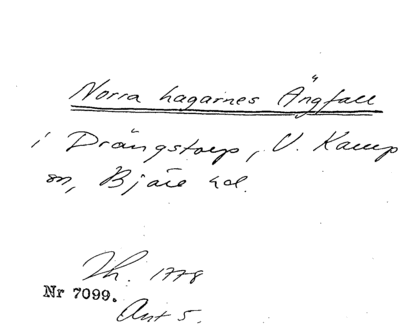 Norra hagarnes Ängfall
i Drängstorp, V. Karup
sn, Bjäre hd.
Th. 1778
Nr 7099.
Akt 5.